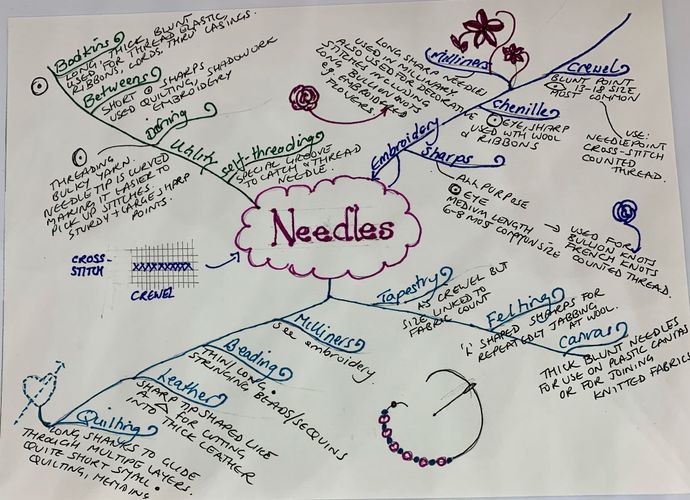 Bodkins
LONG, THICK, BLUNT
USED FOR THREAD ELASTIC
RIBBONS, CORDS THRU' CASINGS.
Betweens
SHORT @ SHARPS
USED QUILTING, SHADOWWORK
EMBROIDERY
Darning
THREADING
BULKY YARN.
NEEDLE TIP IS CURVED
MAKING IT EASIER TO
PICK UP STITCHES.
STURDY + LARGE SHARP
POINTS.
Utility
Self-threading
SPECIAL GROOVE
TO CATCH A THREAD
NEEDLE.
Needles
Embroidery
Milliners
LONG SHARP NEEDLE
USED IN MILLINARY.
ALSO USED FOR DECORATIVE
STITCHES INCLUDING
LONG BULLION KNOTS
eg EMBROIDERED
FLOWERS.
Crewel
BLUNT POINT
13-18 SIZE
MOST COMMON
USE:
NEEDLEPOINT
CROSS-STITCH
COUNTED
THREAD.
Chenille
EYE, SHARP
USED WITH WOOL
RIBBONS
Sharps
ALL PURPOSE
EYE
MEDIUM LENGTH
6-8 MOST COMMON SIZE
→ USED FOR
BULLION KNOTS
FRENCH KNOTS
COUNTED THREAD.
CROSS-
STITCH
CREWEL
Tapestry
AS CREWEL BUT
SIZE LINKED TO
FABRIC COUNT
Felting
'L' SHAPED SHARPS FOR
REPEATEDLY JABBING
AT WOOL.
Canvas
THICK BLUNT NEEDLES
FOR USE ON PLASTIC CANVAS
OR FOR JOINING
KNITTED FABRICS
Milliners
See embroidery.
Beading
THIN/LONG.
STRINGING, BEADS/SEQUINS
Leather
SHARP TIP SHAPED LIKE
A △ FOR CUTTING
INTO THICK LEATHER
Quilting
LONG, SHANKS TO GLIDE
THROUGH MULTIPLE LAYERS.
QUITE SHORT SMALL
QUILTING, MENDING